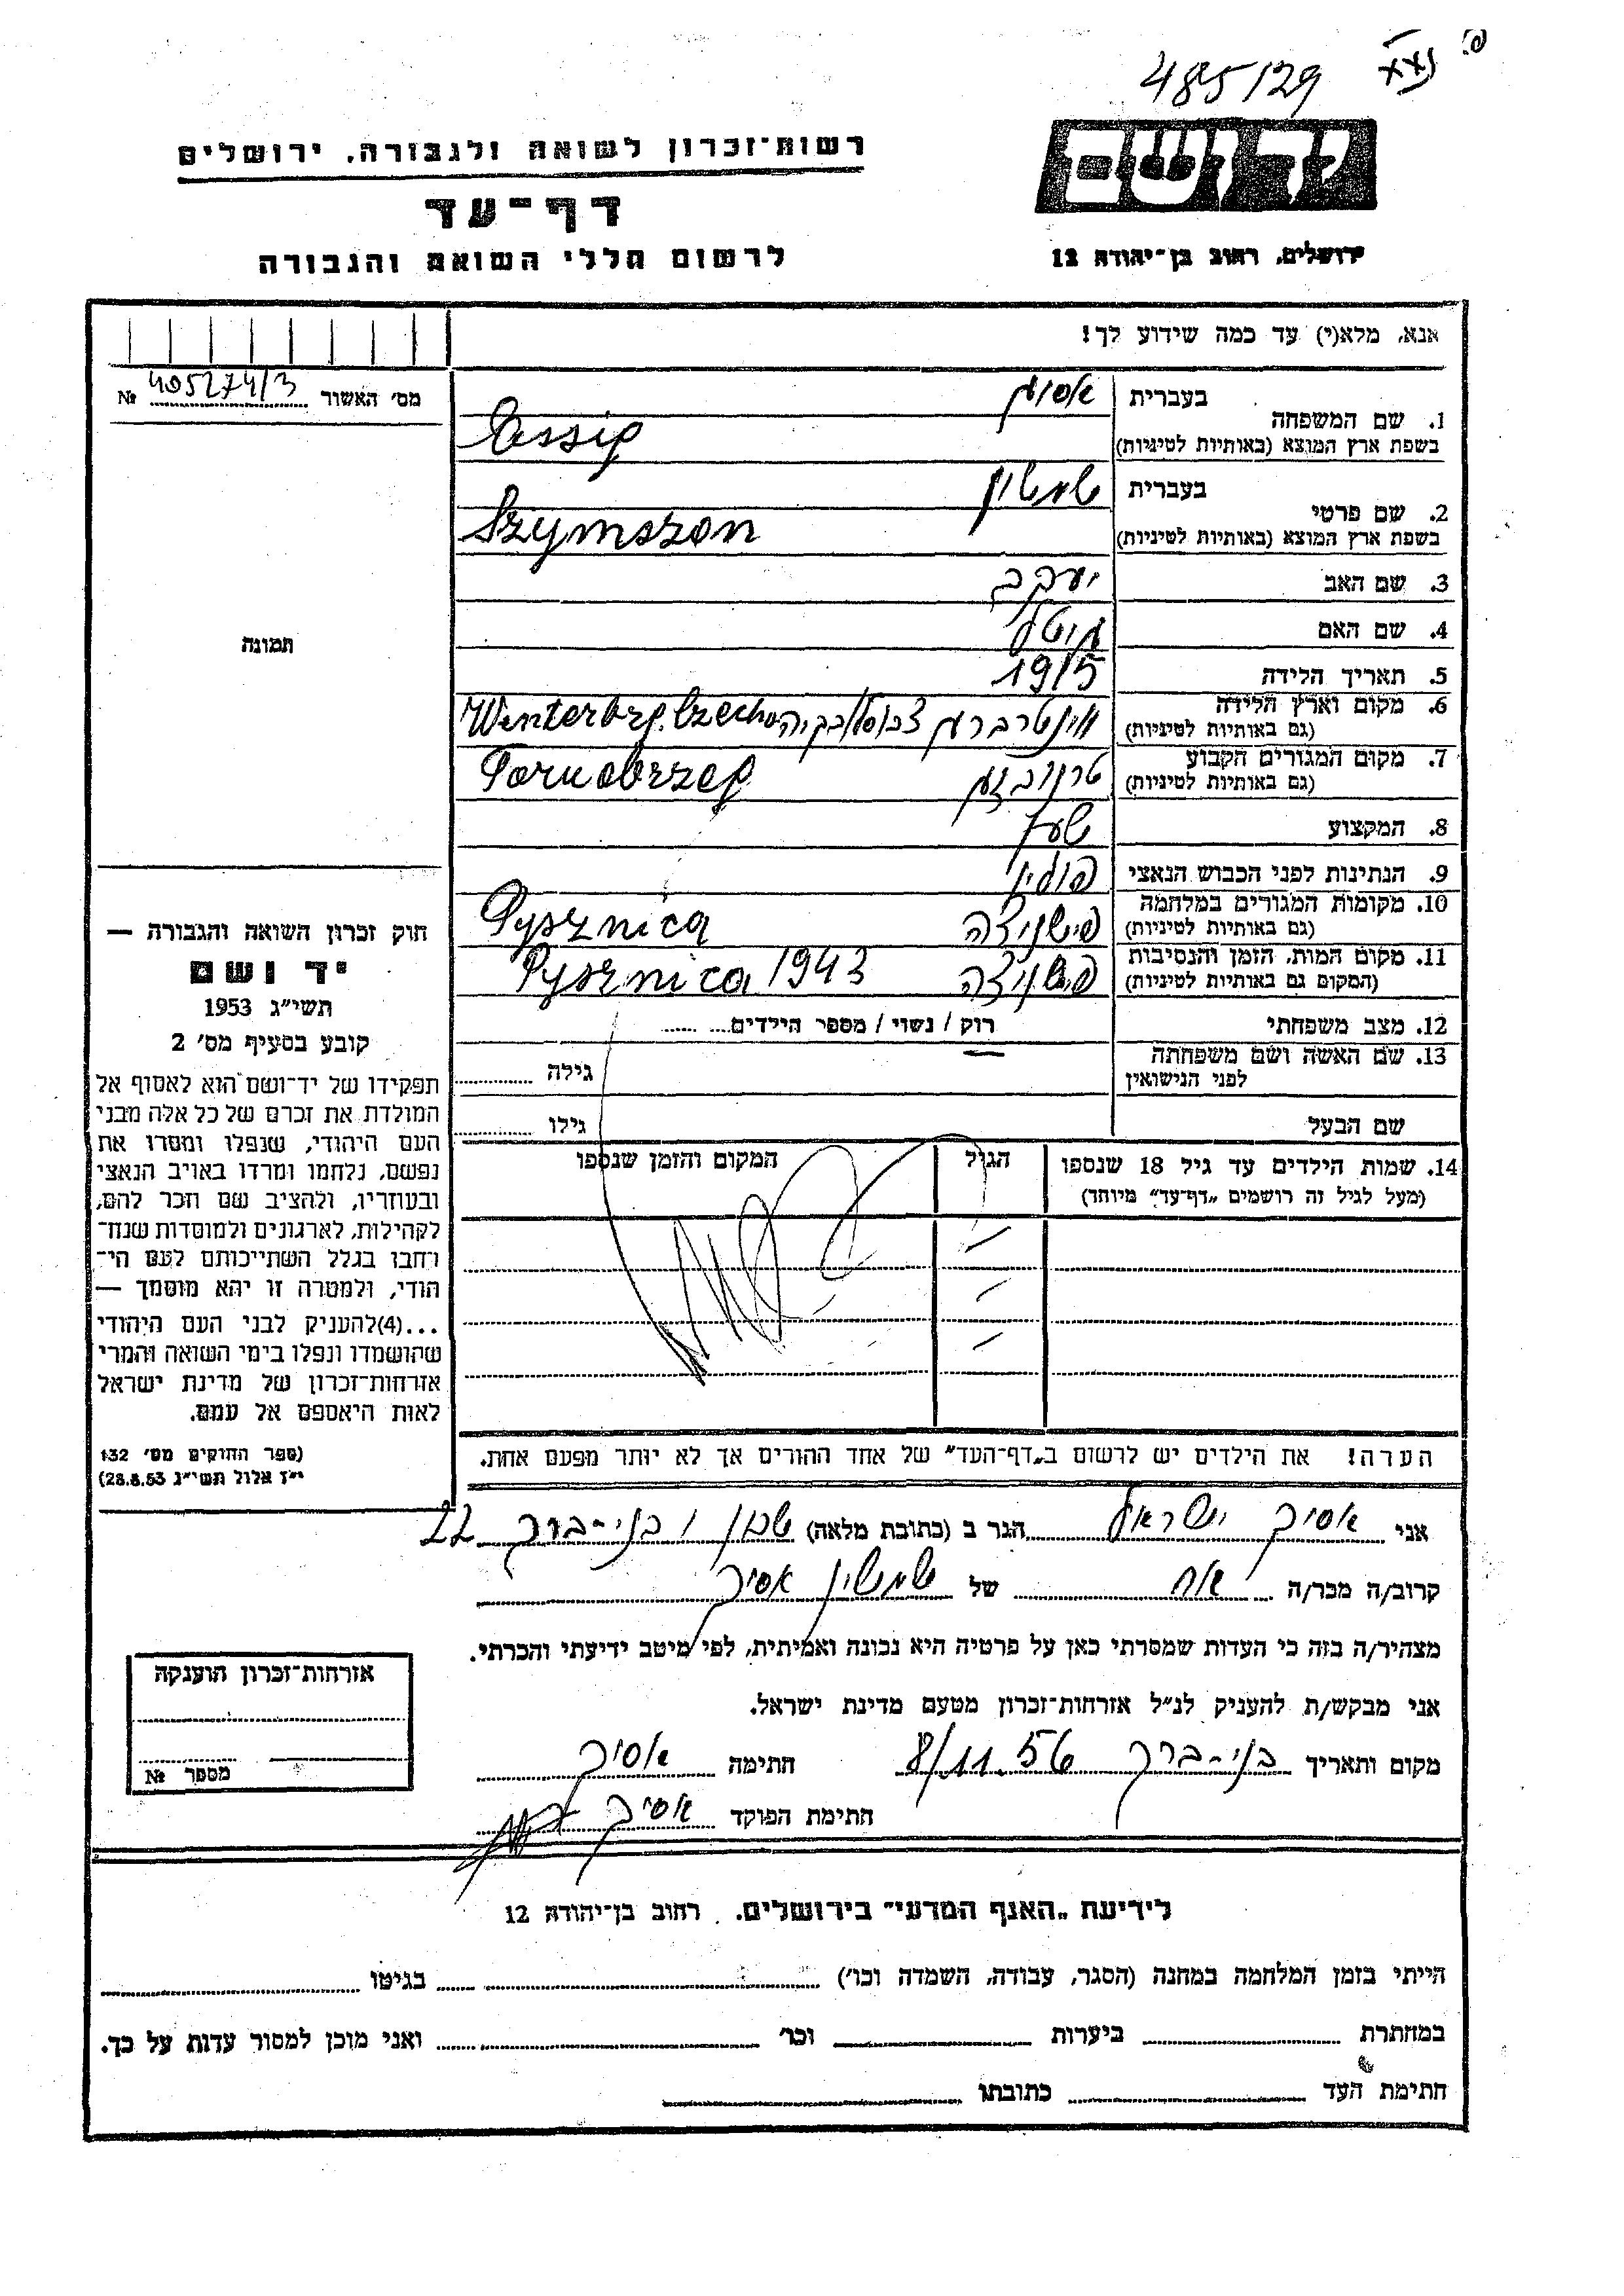 485129
רשות־זכרון לשואה ולגבורה, ירושלים
יד ושם
דף־עד
לרשום חללי השואה והגבורה
ירושלים, רחוב בן־יהודה 12
אנא, מלא(י) עד כמה שידוע לך!
מס׳ האשור 405274/3 №
תמונה
1. שם המשפחה
בעברית
בשפת ארץ המוצא (באותיות לטיניות)
2. שם פרטי
בעברית שמשון
בשפת ארץ המוצא (באותיות לטיניות) Szymszon
3. שם האב יעקב
4. שם האם גיטל
5. תאריך הלידה 1915
6. מקום וארץ הלידה
(גם באותיות לטיניות) ווינטרברג צכוסלובקיה Winterberg. Czecho
7. מקום המגורים הקבוע
(גם באותיות לטיניות) Tarnobrzeg
8. המקצוע
9. הנתינות לפני הכבוש הנאצי פולין
10. מקומות המגורים במלחמה
(גם באותיות לטיניות) פישניצה Pysznica
11. מקום המות, הזמן והנסיבות
(המקום גם באותיות לטיניות) פישניצה Pysznica 1943
12. מצב משפחתי רוק / נשוי / מספר הילדים
13. שם האשה ושם משפחתה
לפני הנישואין גילה
שם הבעל גילו
14. שמות הילדים עד גיל 18 שנספו הגיל המקום והזמן שנספו
(מעל לגיל זה רושמים „דף־עד” מיוחד)
הערה! את הילדים יש לרשום ב„דף־העד” של אחד ההורים אך לא יותר מפעם אחת.
חוק זכרון השואה והגבורה —
יד ושם
תשי״ג 1953
קובע בסעיף מס׳ 2
תפקידו של יד־ושם הוא לאסוף אל
המולדת את זכרם של כל אלה מבני
העם היהודי, שנפלו ומסרו את
נפשם, נלחמו ומרדו באויב הנאצי
ובעוזריו, ולהציב שם וזכר להם,
לקהילות, לארגונים ולמוסדות שנח־
רחבו בגלל השתייכותם לעם הי־
הודי, ולמטרה זו יהא מוסמך —
...(4)להעניק לבני העם היהודי
שהושמדו ונפלו בימי השואה והמרי
אזרחות־זכרון של מדינת ישראל
לאות היאספם אל עמם.
(ספר החוקים מס׳ 132
י״ז אלול תשי״ג 28.8.53)
אני אסיג ישראל הגר ב (כתובת מלאה) שכון ו בני־ברק 22
קרוב/ה מכר/ה אח של שמשון אסיג
מצהיר/ה בזה כי העדות שמסרתי כאן על פרטיה היא נכונה ואמיתית, לפי מיטב ידיעתי והכרתי.
אני מבקש/ת להעניק לנ״ל אזרחות־זכרון מטעם מדינת ישראל.
מקום ותאריך בני־ברק 8/11.56 חתימה אסיג
חתימת הפוקד אסיג
אזרחות־זכרון הוענקה
מספר №
לידיעת „האגף המדעי״ בירושלים. רחוב בן־יהודה 12
הייתי בזמן המלחמה במחנה (הסגר, עבודה, השמדה וכו׳) בגיטו
במחתרת ביערות וכו׳ ואני מוכן למסור עדות על כך.
חתימת העד כתובתו